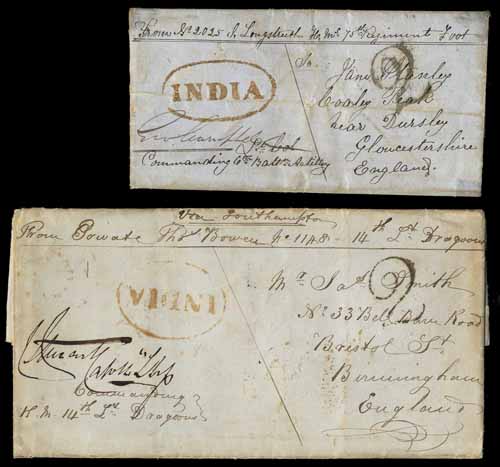 From No 2025 S. Longstreth Her Mts 75th Regiment Foot
To
INDIA
Jane Stanley
Coaley Peak
near Dursley
Gloucestershire
England
Lt Col
Commanding 6th Battn Artillery
Via Southampton
From Private Thos Bowen No 1148 - 14th Lt Dragoons
INDIA
Mr Jas Smith
No 33 Bell Barn Road
Bristol St
Birmingham
England
Commanding
H. M. 14th Lt Dragoons